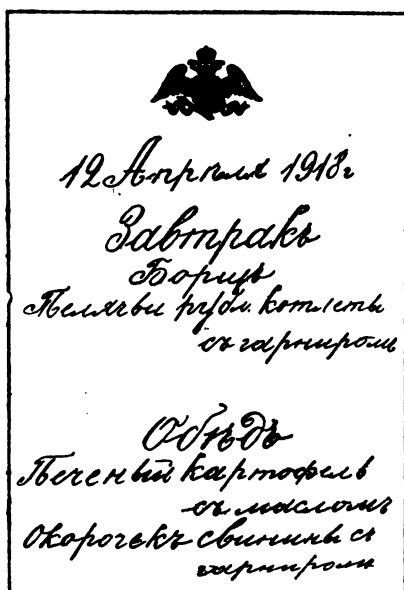 12 Апреля 1918 г
Завтракъ
Борщъ
Телячьи рубл. котлеты
съ гарниромъ
Обѣдъ
Печеный картофель
съ масломъ
Окорочекъ свинины съ
гарниромъ